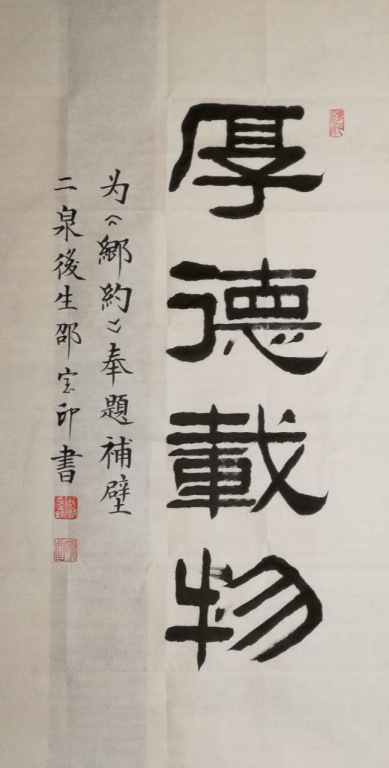 厚德載物
为《鄉約》奉題補壁
二泉後生邵宏印書